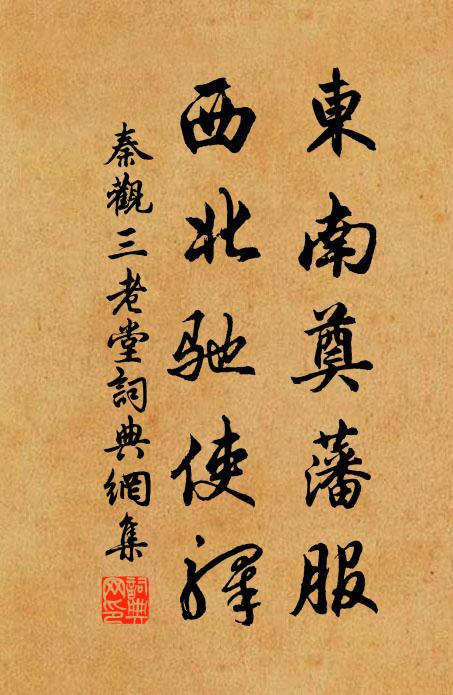 東南奠藩服
西北馳使驛
秦觀三老堂詞典網集
詞典网印